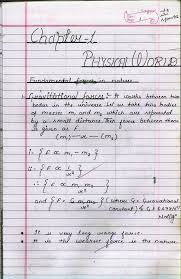 Chapter-1
PHYSICAL WORLD
Fundamental forces in nature
1. Gravitational forces :- It works between two
bodies in the universe let us take two bodies
of masses m₁ and m₂ which are separated
by a small distance then force between them
is given as F.
(m₁) — x — (m₂)
i. { F ∝ m₁ - m₂ }
ii. { F ∝ 1/x² }
and { F = G m₁ m₂ / x² } (where G = Gravitational
constant) G
• It is very long range force.
• It is the weakest force in the nature.